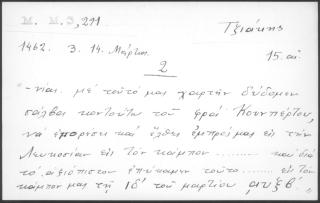 M. M. 3, 211
Τζιάκης
1462. 3. 14. Μάρτιος
15. αἰ
2
-νίαι. μὲ τοῦτό μας χαρτὴν δίδομεν
σάλβο κοντούτο τοῦ φραὶ Κουμπέρτου,
νὰ ἐμπορέσῃ καὶ ἔλθει ἐμπρός μας εἰς τὴν
Λευκοσίαν εἰς τὸν κάμπον .......... καὶ διὰ
τὸ ἀξιόπιστον ἐποίκαμεν τοῦτο ...... εἰς τὸν
κάμπον μας τῇ ΙΔ΄ τοῦ μαρτίου ͵αυξβ΄